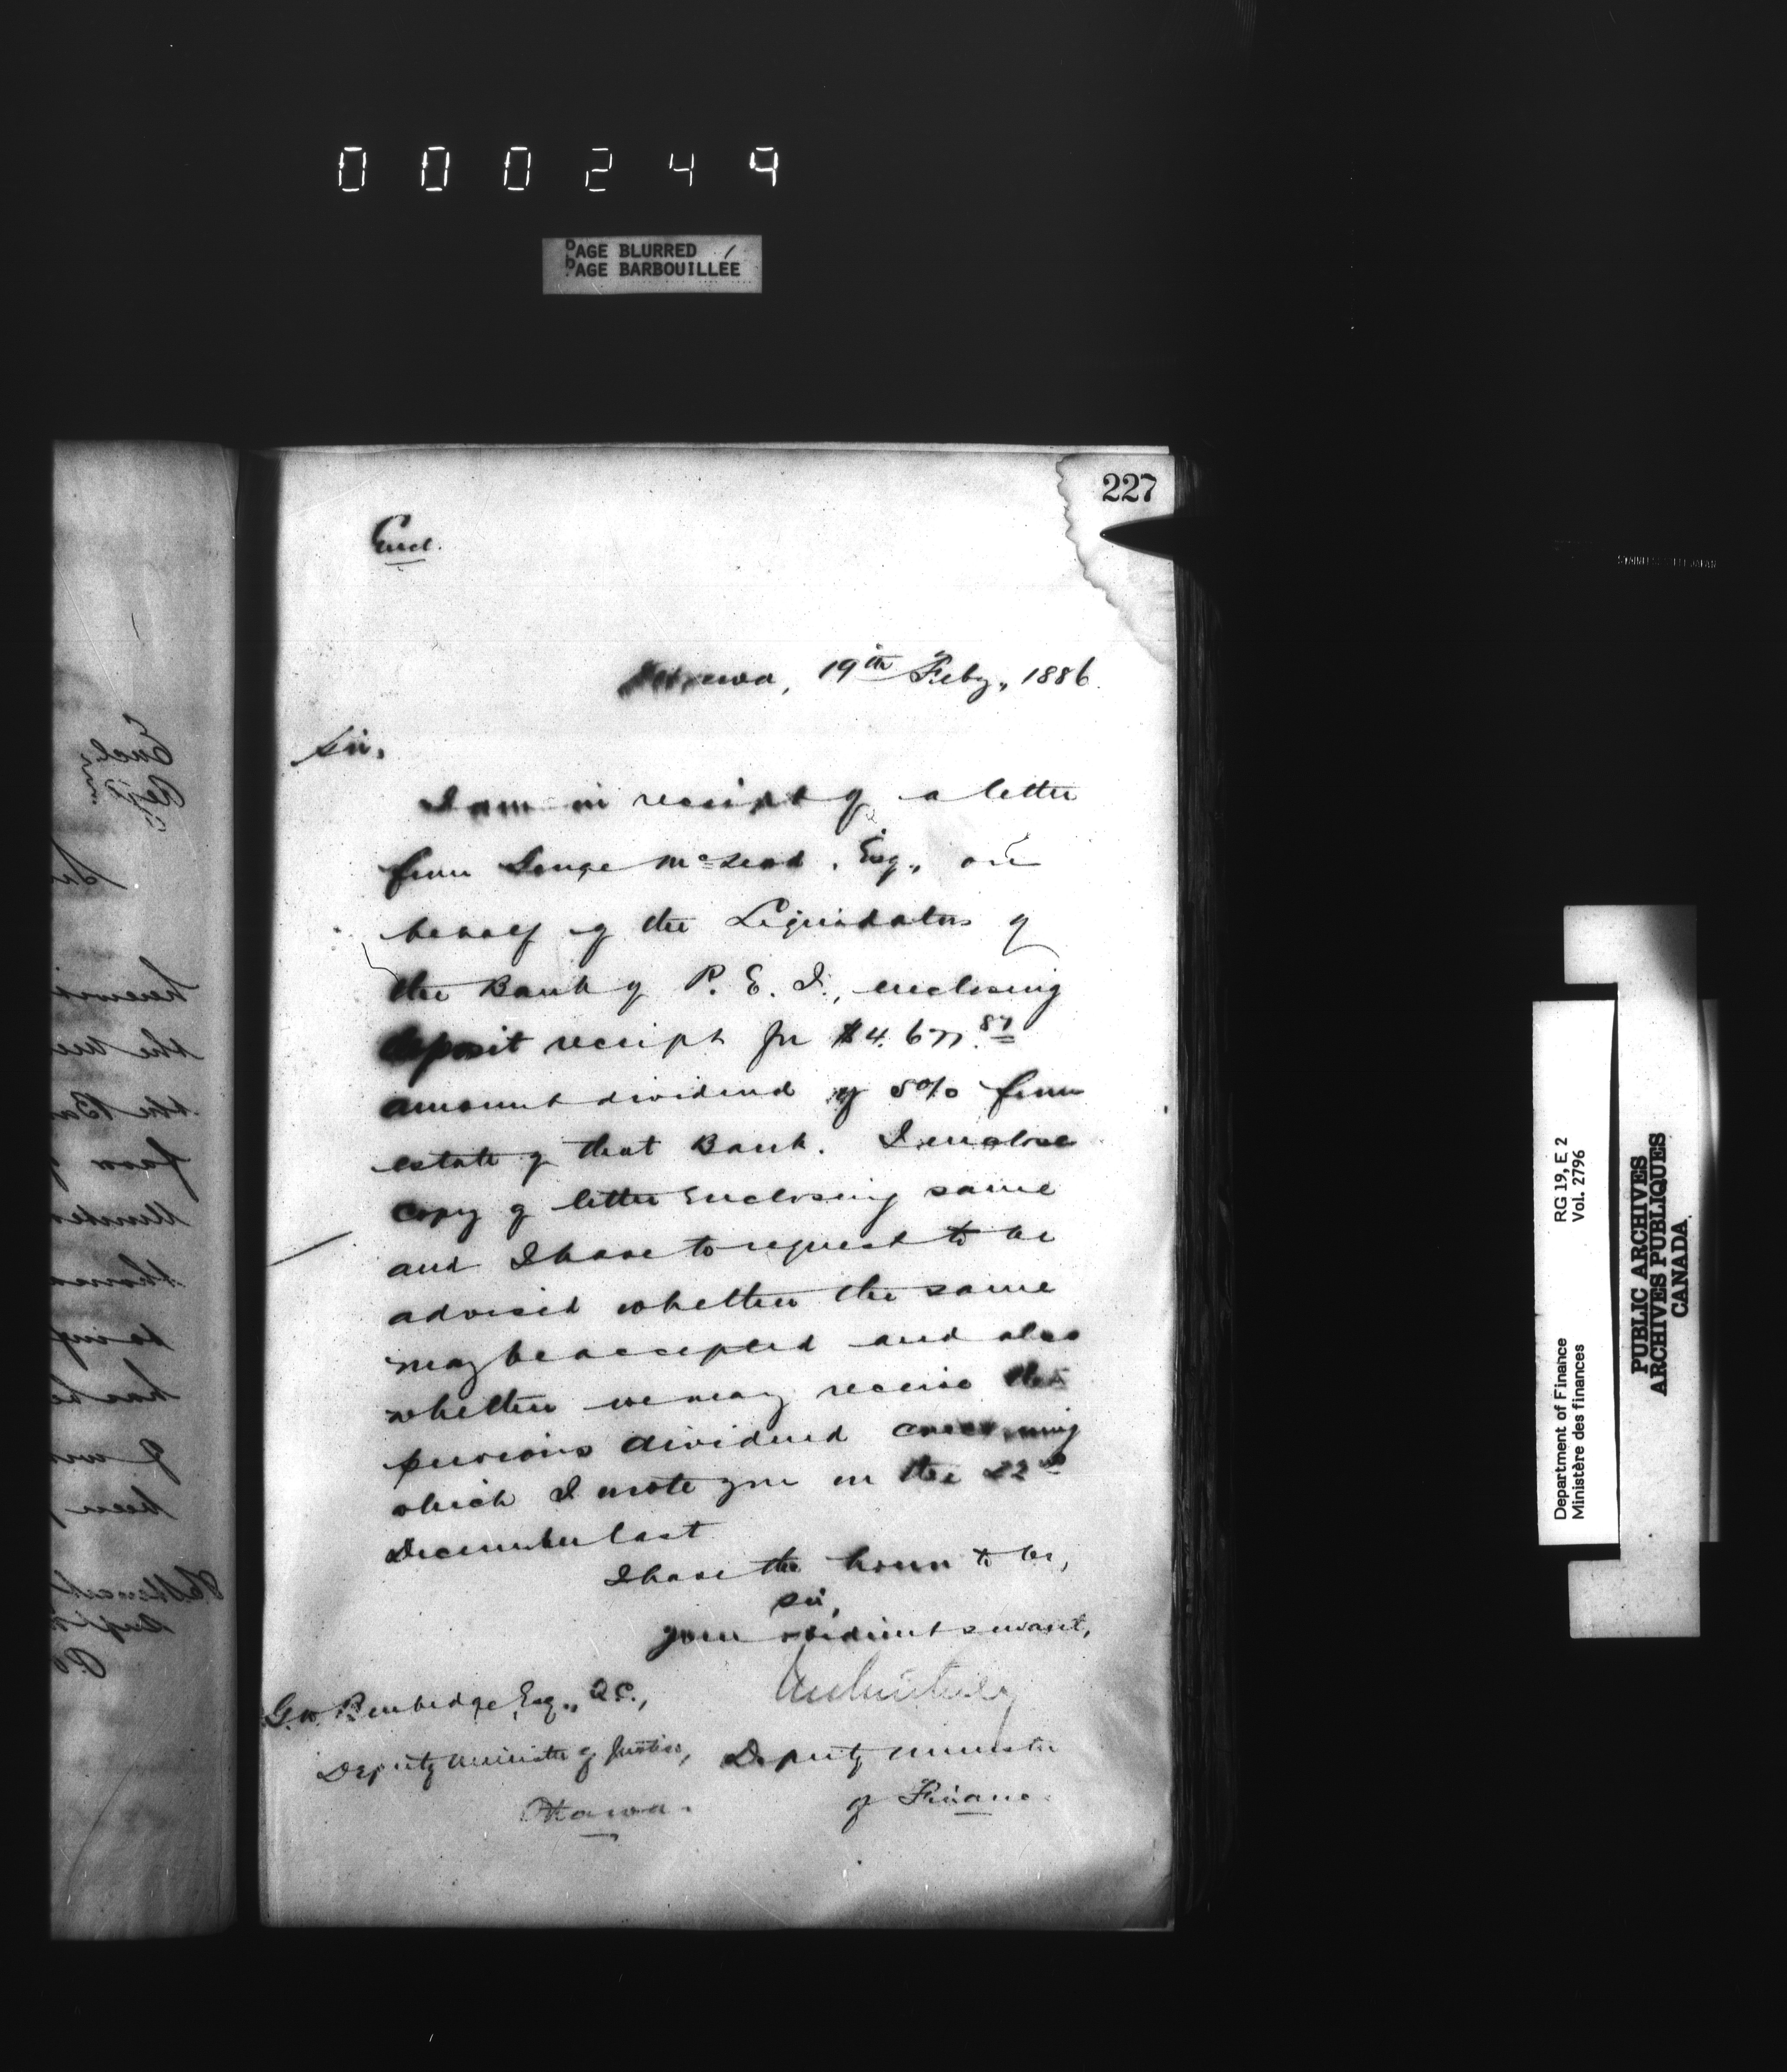 000249
PAGE BLURRED
PAGE BARBOUILLÉE
227
Encl.
Ottawa, 19th Feby., 1886.
Sir,
I am in receipt of a letter
from George McLeod, Esq., on
behalf of the Liquidators of
the Bank of P. E. I., enclosing
deposit receipt for $4.677.87
amount dividend of 5% from
estate of that Bank. I enclose
copy of letter enclosing same
and I have to request to be
advised whether the same
may be accepted and also
whether we may receive the
previous dividend concerning
which I wrote you on the 22nd
December last
I have the honor to be,
Sir,
Your obedient servant,
G.W. Burbidge, Esq., Q.C.,
Deputy Minister of Justice,
Ottawa.
Deputy Minister
of Finance.
Department of Finance RG 19, E 2
Ministère des finances Vol. 2796
PUBLIC ARCHIVES
ARCHIVES PUBLIQUES
CANADA